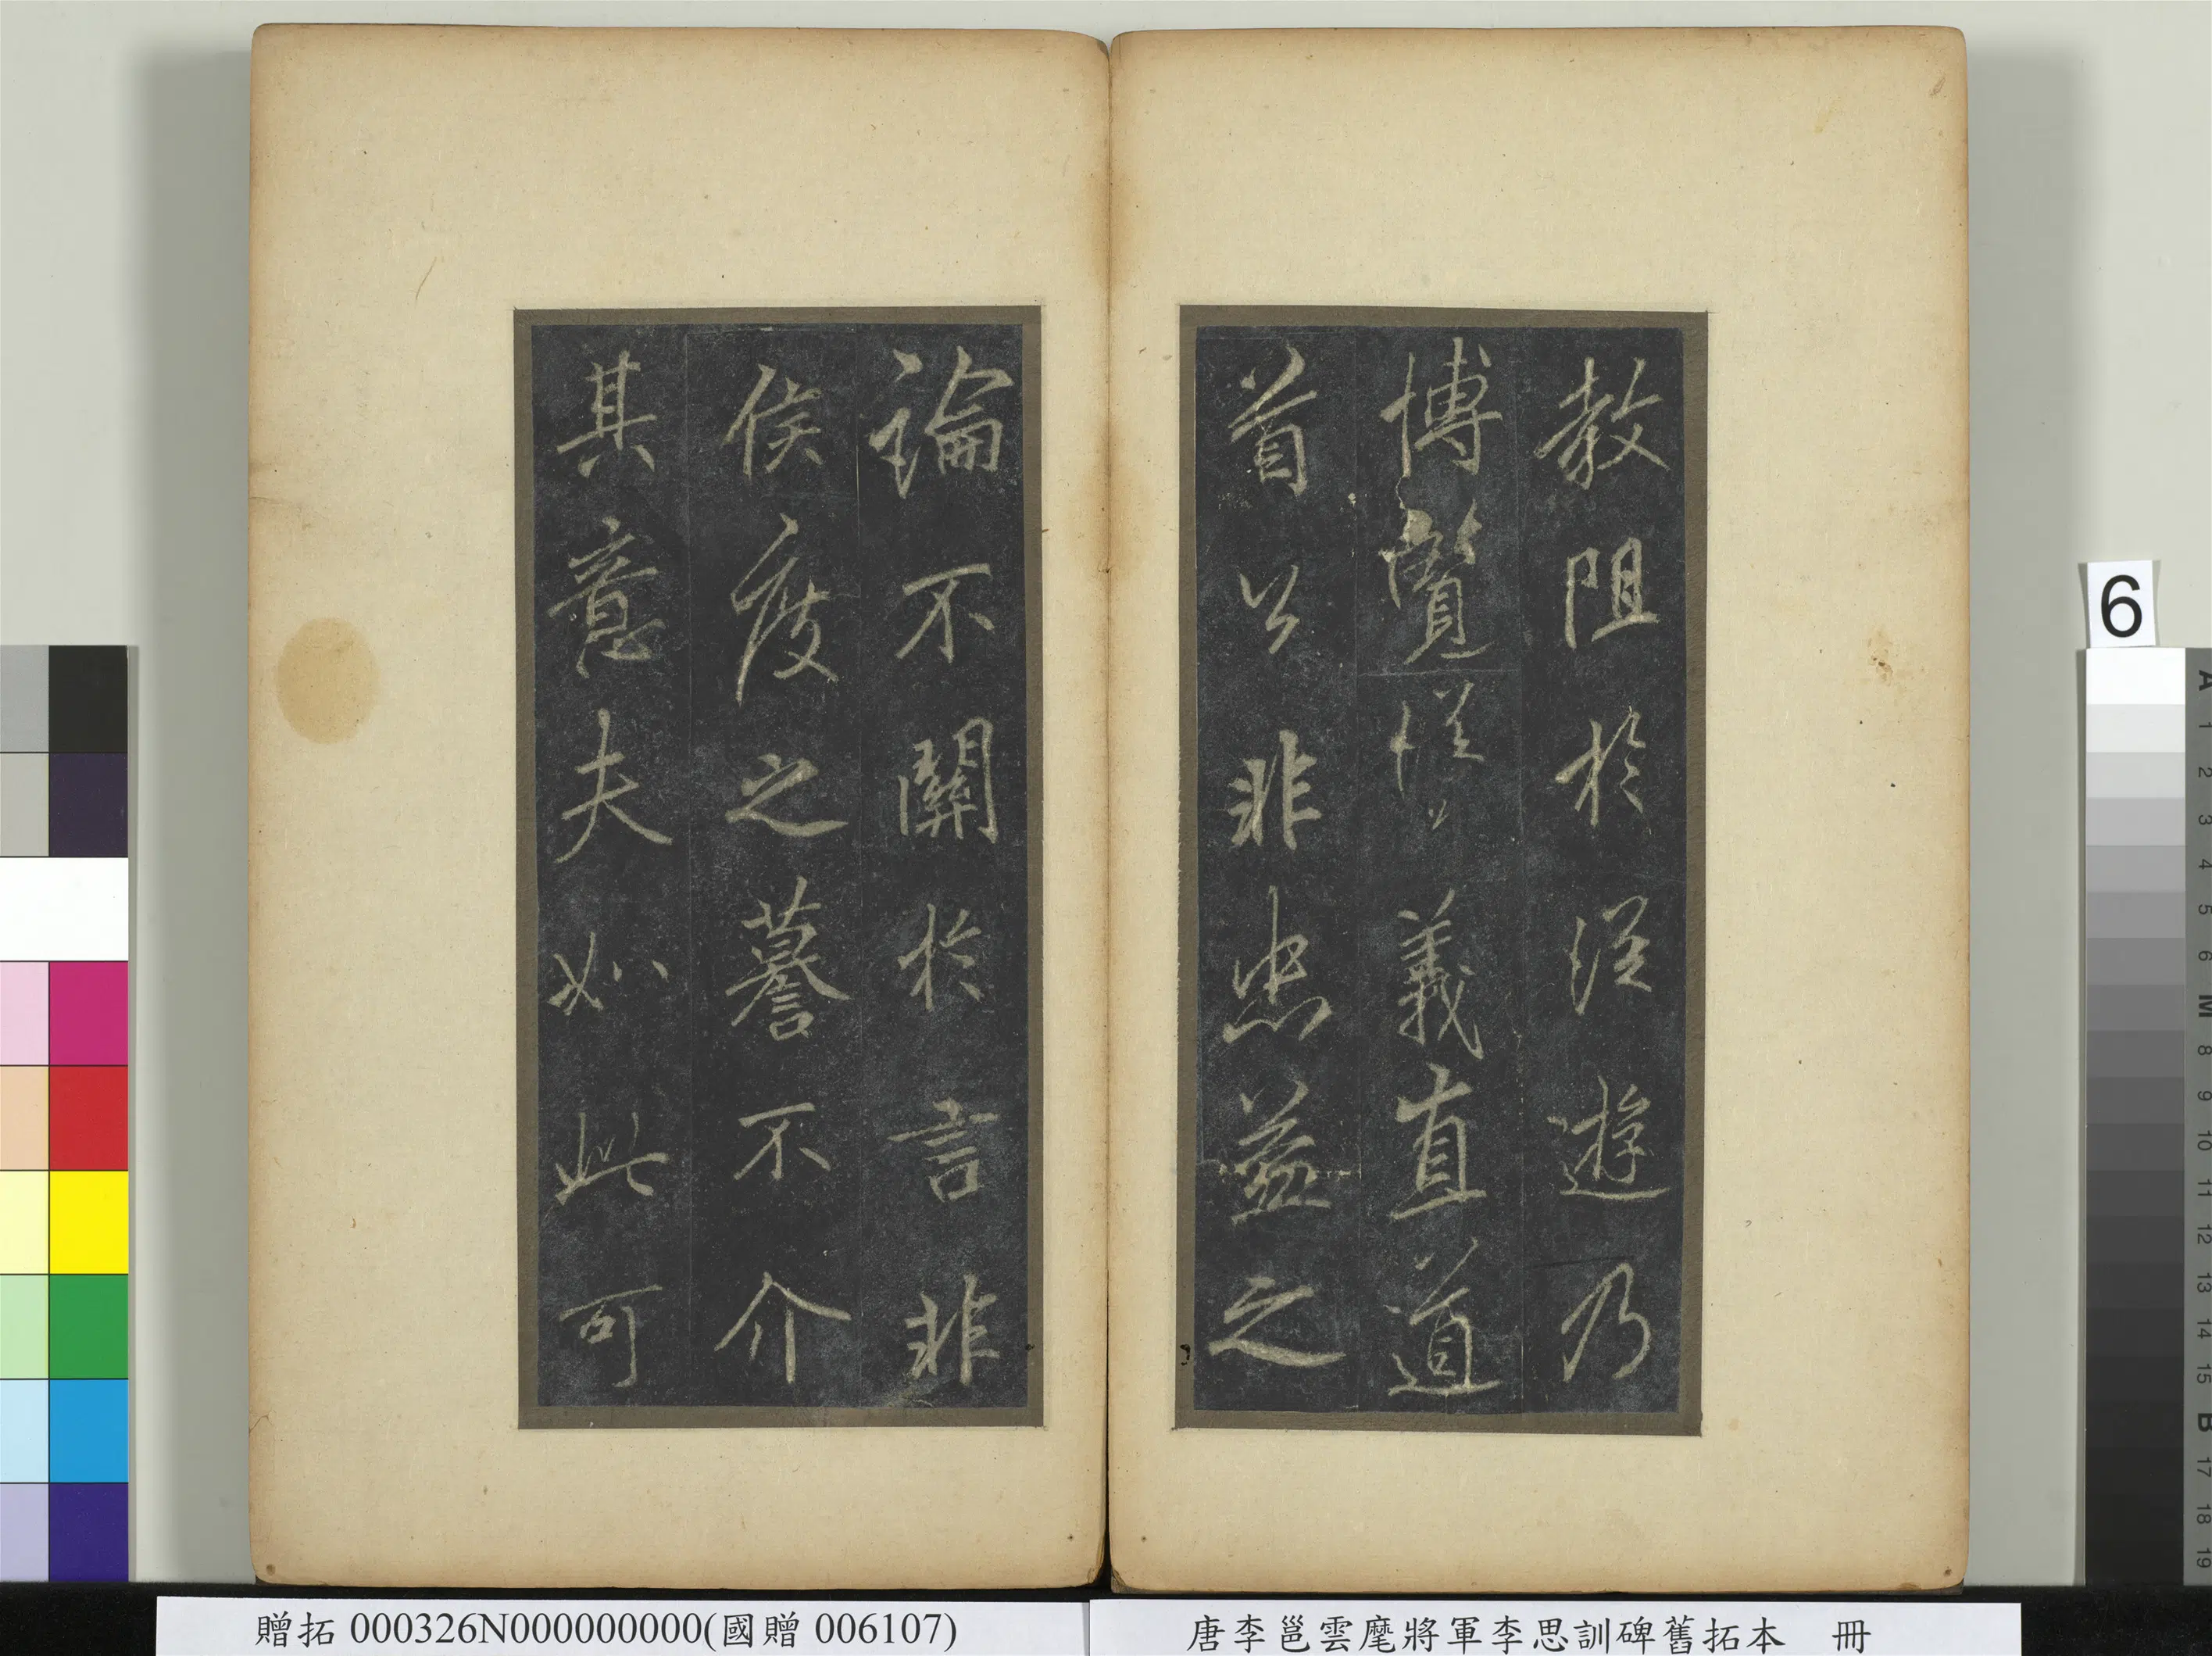 教阻於從遊乃
博覽從義直道
首公非忠益之
論不關於言非
侯度之謩不介
其意夫如此可
6
A 1 2 3 4 5 6 M 8 9 10 11 12 13 14 15 B 17 18 19
贈拓 000326N000000000(國贈 006107)
唐李邕雲麾將軍李思訓碑舊拓本 冊